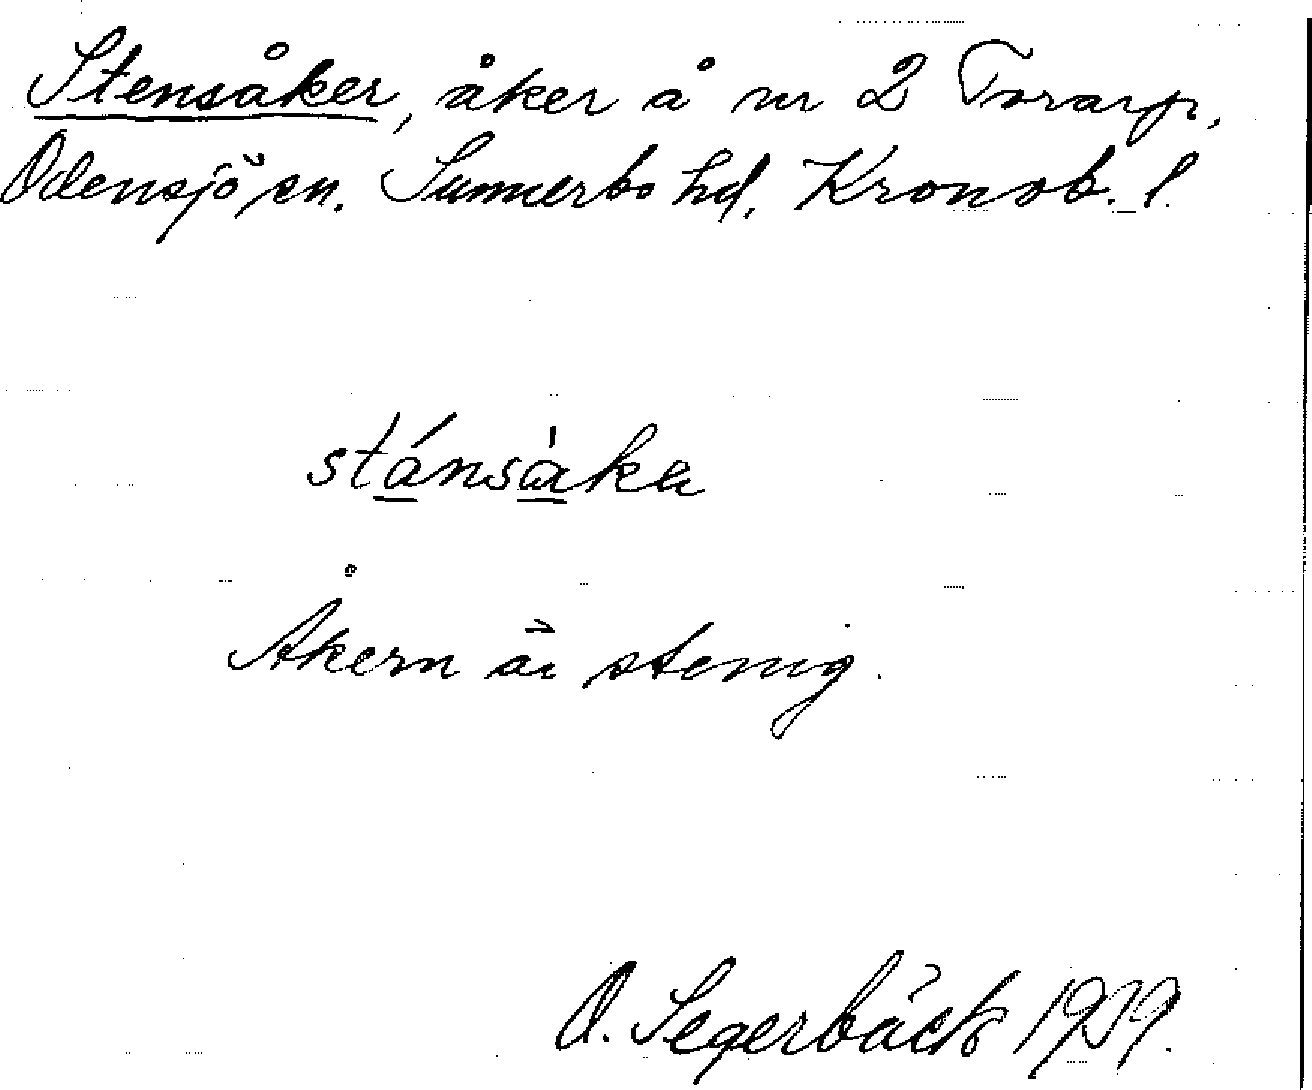 Stensåker, åker å nr 2 Torarp,
Odensjö sn. Sunnerbo hd. Kronob. l.
stánsàka
Åkern är stenig.
O. Segerbäck 1929.